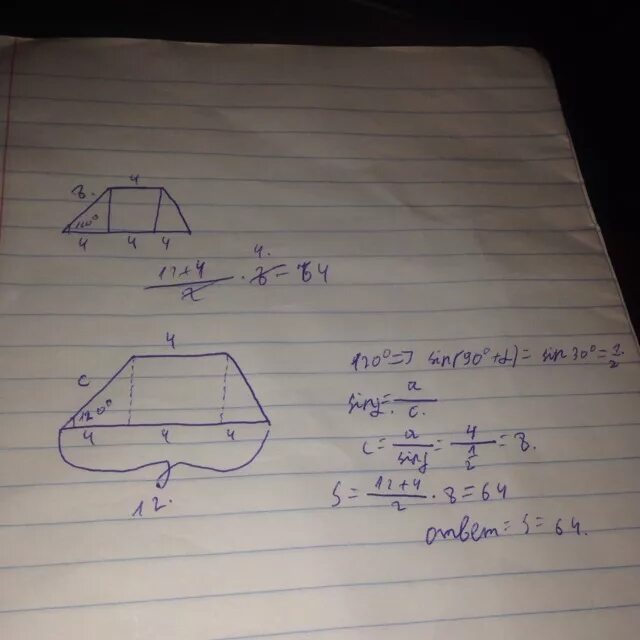 4
8.
120°
4 4 4
12+4 / 2 · 8 = 64
4.
4
c
120°
4 4 4
12.
120° => sin(90°+α) = sin 30° = 1/2
sin γ = a/c.
c = a / sin γ = 4 / 1/2 = 8.
S = 12+4 / 2 · 8 = 64
ответ = S = 64.